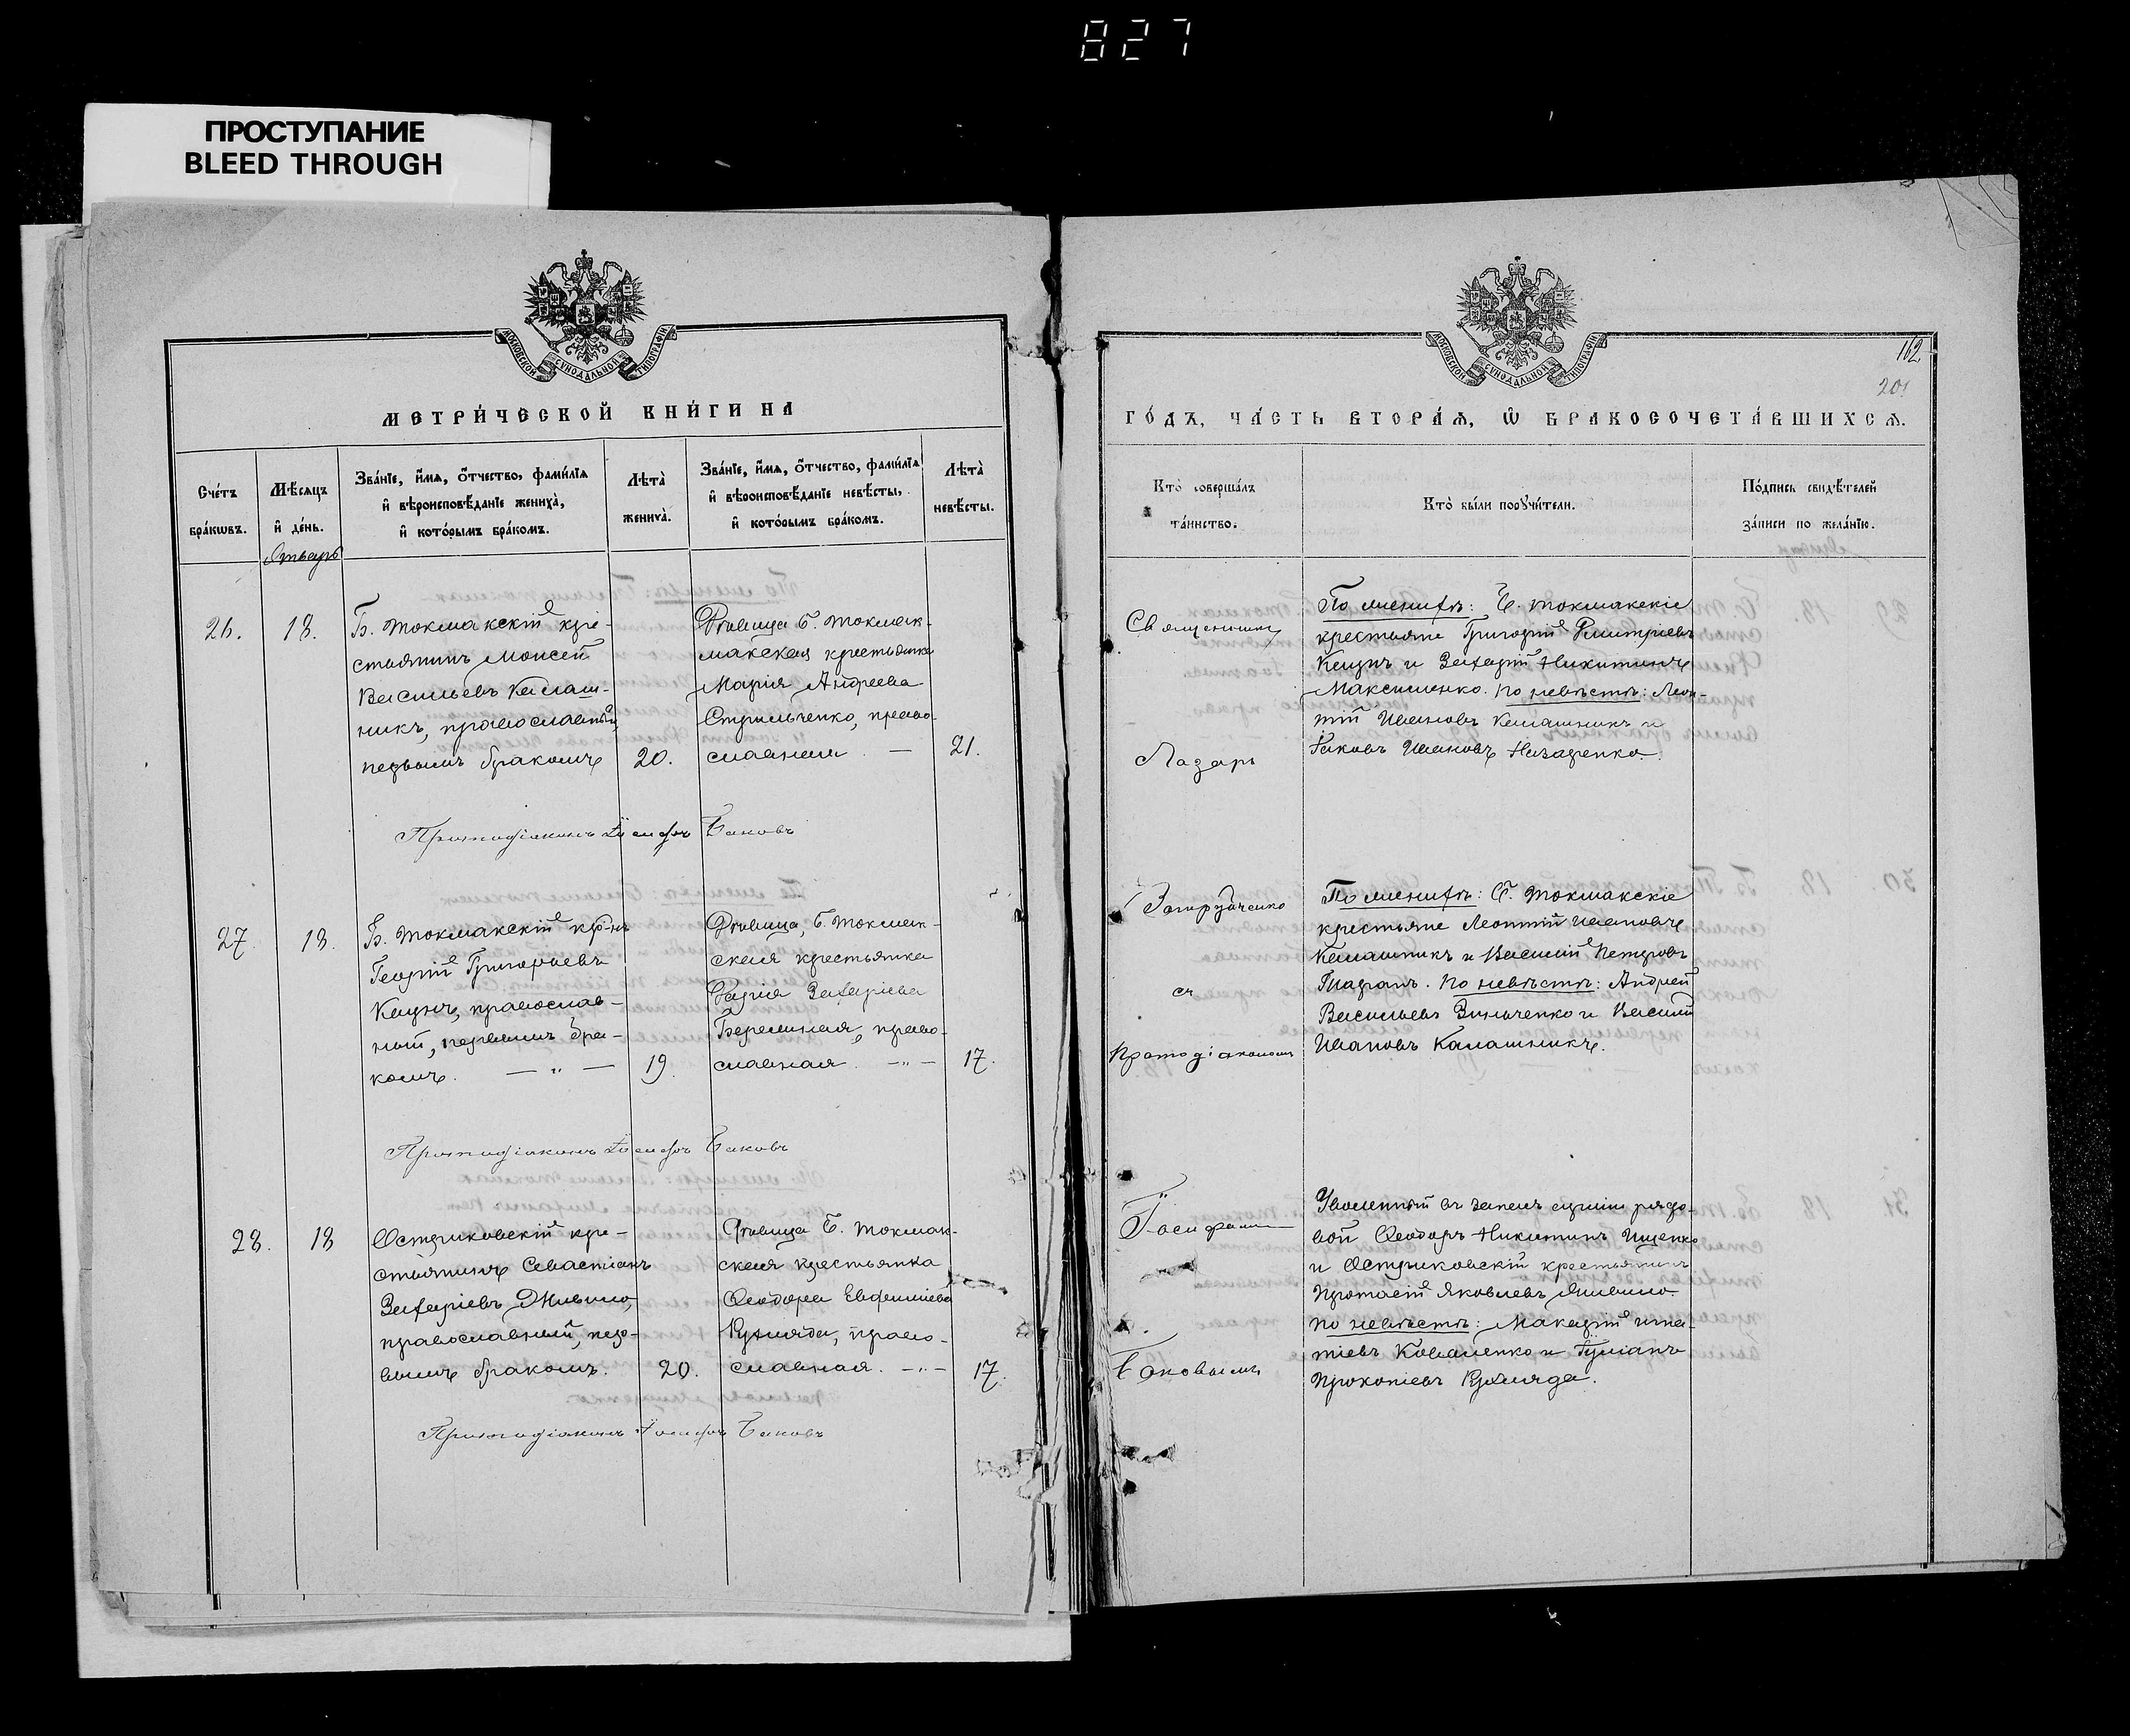 827
ПРОСТУПАНИЕ
BLEED THROUGH
МОСКОВСКОЙ СѴНОДАЛЬНОЙ ТИПОГРАФІИ
МЕТРИ́ЧЕСКОЙ КНИ́ГИ НА
Сче́тъ бра́кѡвъ.
Мѣ́сяцъ и҆ де́нь.
Зва́нїе, и҆́мѧ, ѻ҆́тчество, фами́лїѧ и҆ вѣроисповѣ́данїе жениха̀, и҆ кото́рымъ бра́комъ.
Лѣта̀ жениха̀.
Зва́нїе, и҆́мѧ, ѻ҆́тчество, фами́лїѧ и҆ вѣроисповѣ́данїе невѣ́сты, и҆ кото́рымъ бра́комъ.
Лѣта̀ невѣ́сты.
26.
18.
Б. Токмакскій кре-
стьянинъ Моисей
Васильевъ Калаш-
никъ, православный,
первымъ бракомъ
20.
Дѣвица Б. Токмак-
макская крестьянка
Марія Андреева
Стрильченко, право-
славная —
21.
Протодіаконъ Іосифъ Баковъ
27.
18.
Б. Токмакскій кр-нъ
Георгій Григорьевъ
Кацунъ, православ-
ный, первымъ бра-
комъ. — „ —
19.
Дѣвица, Б. Токмак-
ская крестьянка
Дарія Захаріева
, право-
славная. — „ —
17.
Протодіаконъ Іосифъ Баковъ
28.
18
Остриковскій кре-
стьянинъ Севастіанъ
Захаріевъ
православный, пер-
вымъ бракомъ.
20.
Дѣвица Б. Токмак-
ская крестьянка
Ѳеодора Евфиміева
Кухляда, право-
славная. — „ —
17.
Протодіаконъ Іосифъ Баковъ
МОСКОВСКОЙ СѴНОДАЛЬНОЙ ТИПОГРАФІИ
162.
201
ГО́ДЪ, ЧА́СТЬ ВТОРА́Ѧ, Ѡ҆ БРАКОСОЧЕТА́ВШИХСѦ.
Кто̀ соверша́лъ та́инство.
Кто̀ бы́ли порꙋчи́тели.
По́дпись свидѣ́телей за́писи по жела́нїю.
Священникъ
Лазарь
Загрудченко
съ
Протодіакономъ
Іосифомъ
Баковымъ
По женихѣ: Б. Токмакскіе
крестьяне Григорій Дмитріевъ
Кацунъ и Захарій Никитинъ
Максименко. По невѣстѣ: Леон-
тій Ивановъ Калашникъ и
Іаковъ Ивановъ Назаренко.
По женихѣ: Б. Токмакскіе
крестьяне Леонтій Ивановъ
Калашникъ и Василій Петровъ
Таранъ. По невѣстѣ: Андрей
Васильевъ Зинченко и Василій
Ивановъ Калашникъ.
Уволенный въ запасъ арміи рядо-
вой Ѳеодоръ Никитинъ Ищенко
и Остриковскій крестьянинъ
Протасій Яковлевъ
По невѣстѣ: Макарій Игна-
тіевъ Коваленко и Іуліанъ
Прокопіевъ Кухляда.